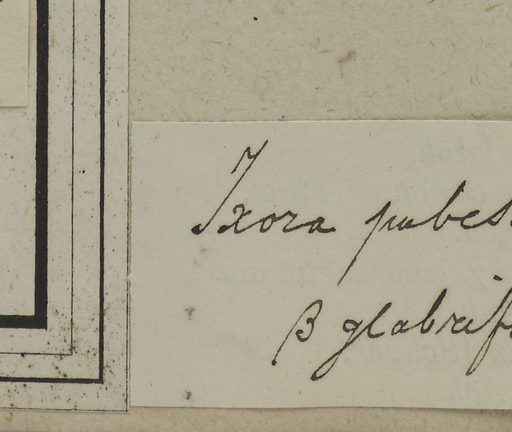 Ixora pubes
β glabrifs